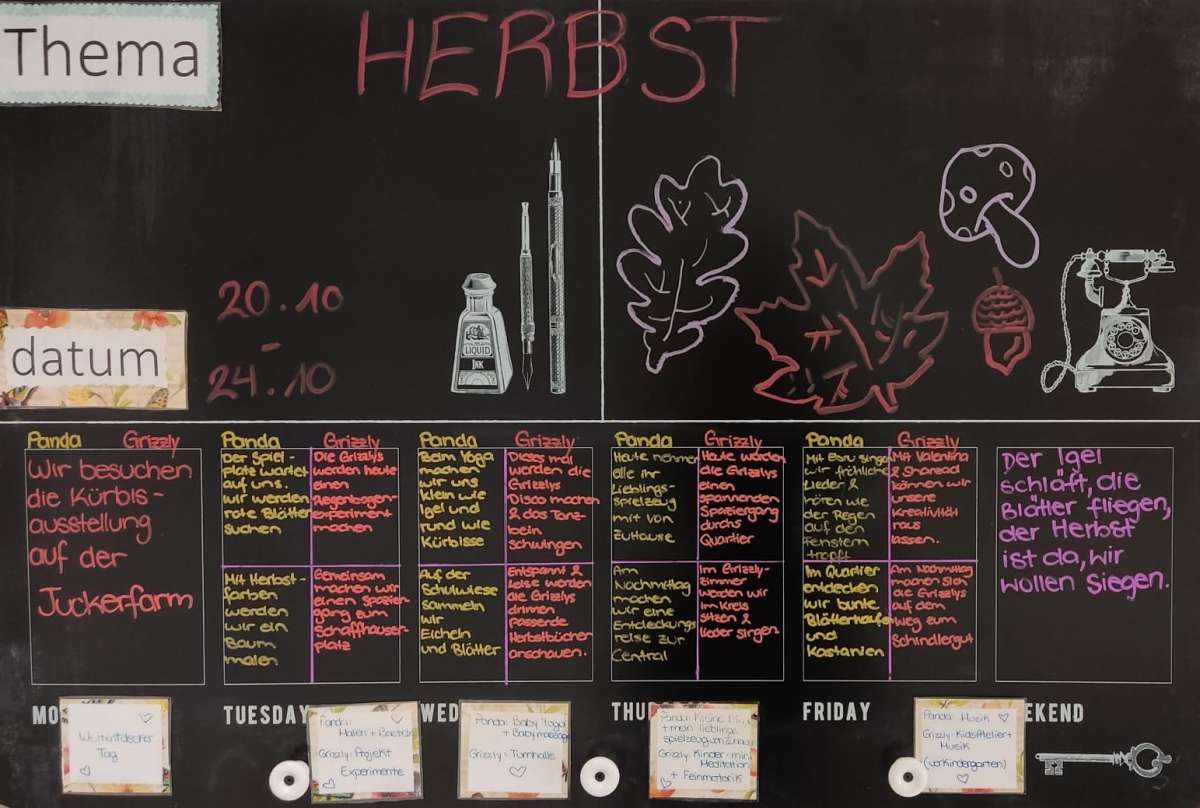 Thema
HERBST
datum
20.10
-
24.10
LIQUID
INK
Panda Grizzly
Wir besuchen
die Kürbis-
ausstellung
auf der
Juckerfarm
Panda
Der Spiel-
platz wartet
auf uns.
Wir werden
rote Blätter
suchen
Mit Herbst-
farben
werden
wir ein
Baum
malen
Grizzly
Die Grizzlys
werden heute
einen
Regenbogen-
experiment
machen
Gemeinsam
machen wir
einen Spazier-
gang zum
Schaffhauser-
platz
Panda
Beim Yoga
machen
wir uns
klein wie
Igel und
rund wie
Kürbisse
Auf der
Schulwiese
sammeln
wir
Eicheln
und Blätter
Grizzly
Dieses mal
werden die
Grizzlys
Disco machen
& das Tanz-
bein
schwingen
Entspannt &
leise werden
die Grizzlys
drinnen
passende
Herbstbücher
anschauen.
Panda
Heute nehmen
alle ihr
Lieblings-
spielzeug
mit von
Zuhause
Am
Nachmittag
machen
wir eine
Entdeckungs
reise zur
Central
Grizzly
Heute werden
die Grizzlys
einen
spannenden
Spaziergang
durchs
Quartier
Im Grizzly-
zimmer
werden wir
im Kreis
sitzen &
lieder singen
Panda
Mit Ebru singen
wir fröhliche
Lieder &
hören wie
der Regen
auf den
Fenstern
tropft
Im Quartier
entdecken
wir bunte
Blätterhaufen
und
Kastanien
Grizzly
Mit Valentina
& Sharead
können wir
unsere
Kreativität
raus
lassen.
Am Nachmittag
machen sich
die Grizzlys
auf dem
Weg zum
Schindlergut
Der Igel
schläft, die
Blätter fliegen,
der Herbst
ist da, wir
wollen siegen.
MO
TUESDAY
WED
THU
FRIDAY
EKEND
Waldtag
Tag
Panda:
Malen + Basteln
Grizzly: Projekt
Experimente
Panda: Baby Yoga
+ Babymassage
Grizzly: Turnhalle
+ mein lieblings
spielzeug von Zuhause
Grizzly: Kinder-mini
Meditation
+ Feinmotorik
Panda: Musik
Grizzly: KidsAtelier +
Musik
(vorkindergarten)